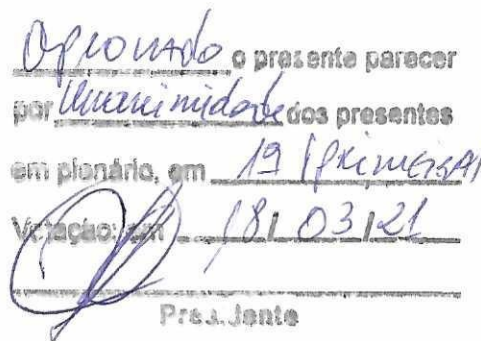 Aprovado o presente parecer
por Unanimidade dos presentes
em plenário, em 1ª (primeira)
Votação: em 18/03/21
Presidente